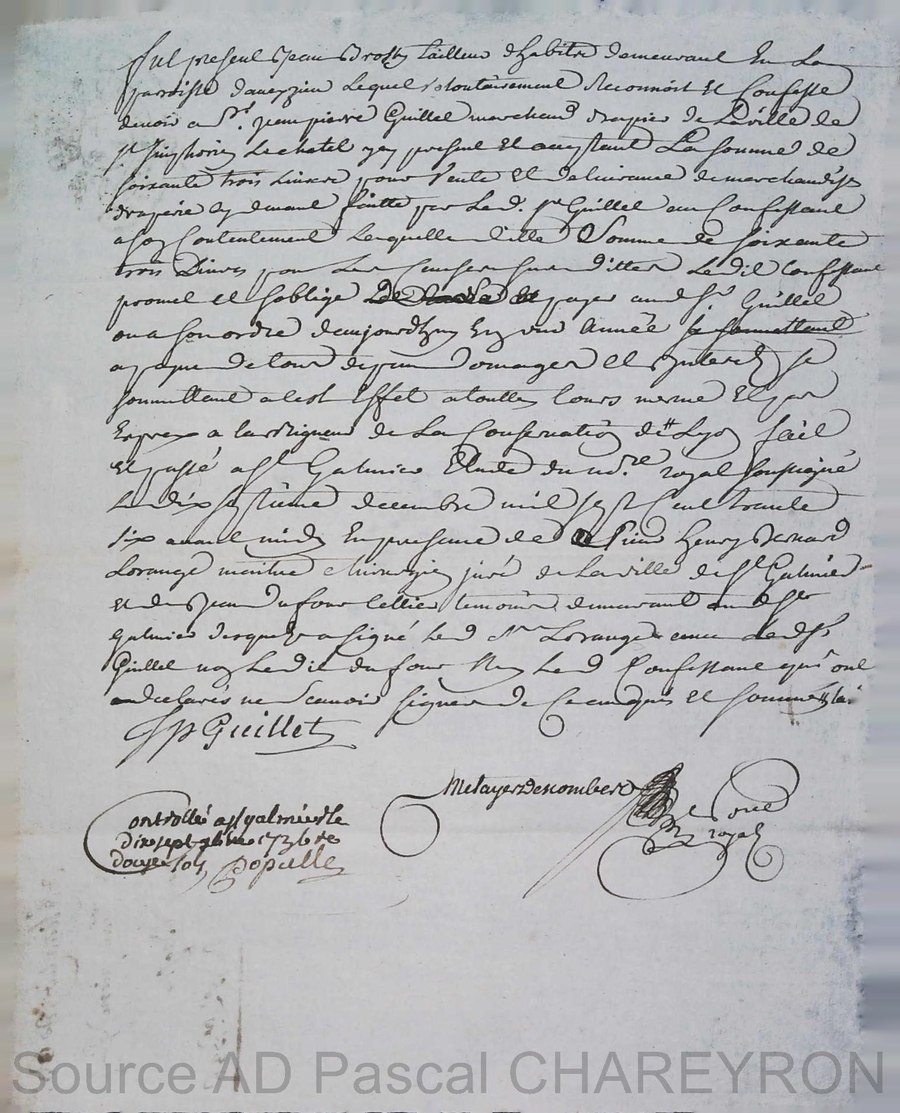 fut present Jean Drost tailleur dhabits demeurant En La
parroisse daveyzieu Lequel volontairement Reconnoit Et Confesse
devoir a Sr. jean pierre Guillet marchand drapier de La ville de
St Sinphorien Lechatel icy present Et acceptant La somme de
soixante trois Livres pour Vente Et delivrance de marchandise
draperie cy devant faitte par Led. sr Guillet au Confessant
a son Contentement Laquelle ditte Somme de soixante
trois Livres pour Les Causes susdittes Le dit Confessant
promet Et soblige payer aud Sr Guillet
ou a son ordre daujourdhuy En une Année se soumettant
a peyne de tous depens domages Et Interests se
soumettant a cest Effet a touttes Cours mesme Et par
Exprez a la Rigueur de La Conservation de Lyon fait
Et passé a St Galmier Etude du nore royal soussigné
Le dix septieme decembre mil sept Cent trante
six avant midy En presence de Sieur Henry Bernard
Lorange maitre chirurgien juré de La ville de St Galmier
et de Jean dufour Cellier temoins demeurant aud St
Galmier desquels a signé Led Sr Lorange avec Led Sr
Guillet non Le dit dufour Ny Led Confessant qui ont
declarés ne Scavoir signer de Ce enquis Et sommés
JpGuillet
Metayer Descombes
Nore
royal
Controllé a St galmier le
dix sept xbre 1736 Re
douze sols Populle
Source AD Pascal CHAREYRON